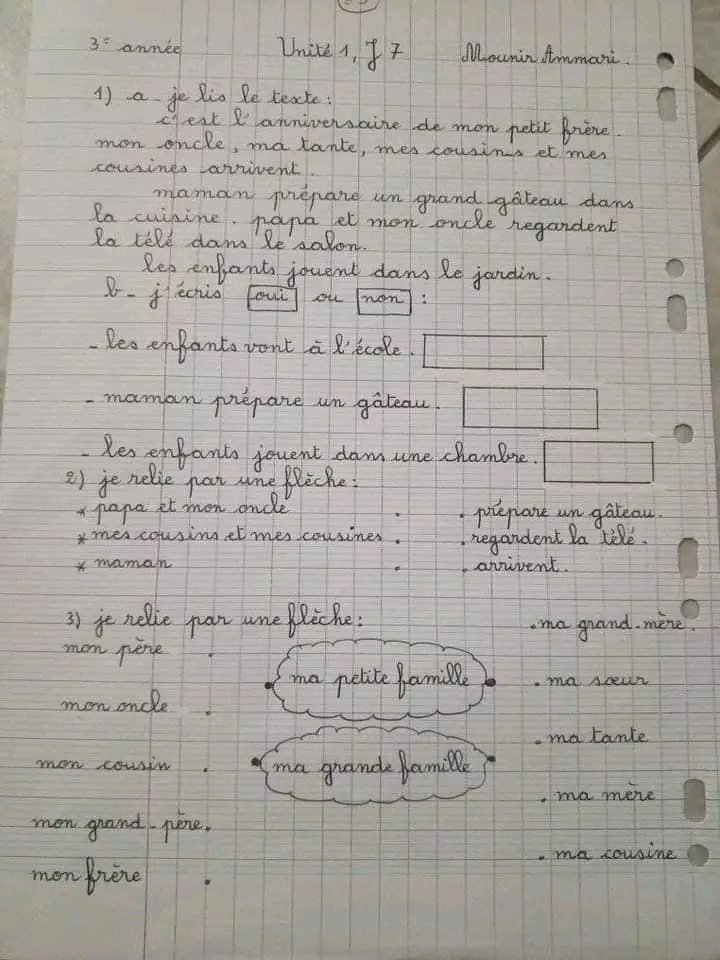 3e année Unité 1, J 7 Mounir Ammari.
1) a - je lis le texte :
c'est l'anniversaire de mon petit frère.
mon oncle, ma tante, mes cousins et mes
cousines arrivent.
maman prépare un grand gâteau dans
la cuisine. papa et mon oncle regardent
la télé dans le salon.
les enfants jouent dans le jardin.
b - j'écris oui ou non :
- les enfants vont à l'école.
- maman prépare un gâteau.
- les enfants jouent dans une chambre.
2) je relie par une flèche :
* papa et mon oncle . . prépare un gâteau.
* mes cousins et mes cousines . . regardent la télé.
* maman . . arrivent.
3) je relie par une flèche : . ma grand-mère.
mon père .
ma petite famille . ma sœur
mon oncle .
. ma tante
mon cousin . ma grande famille
. ma mère
mon grand-père.
. ma cousine
mon frère .